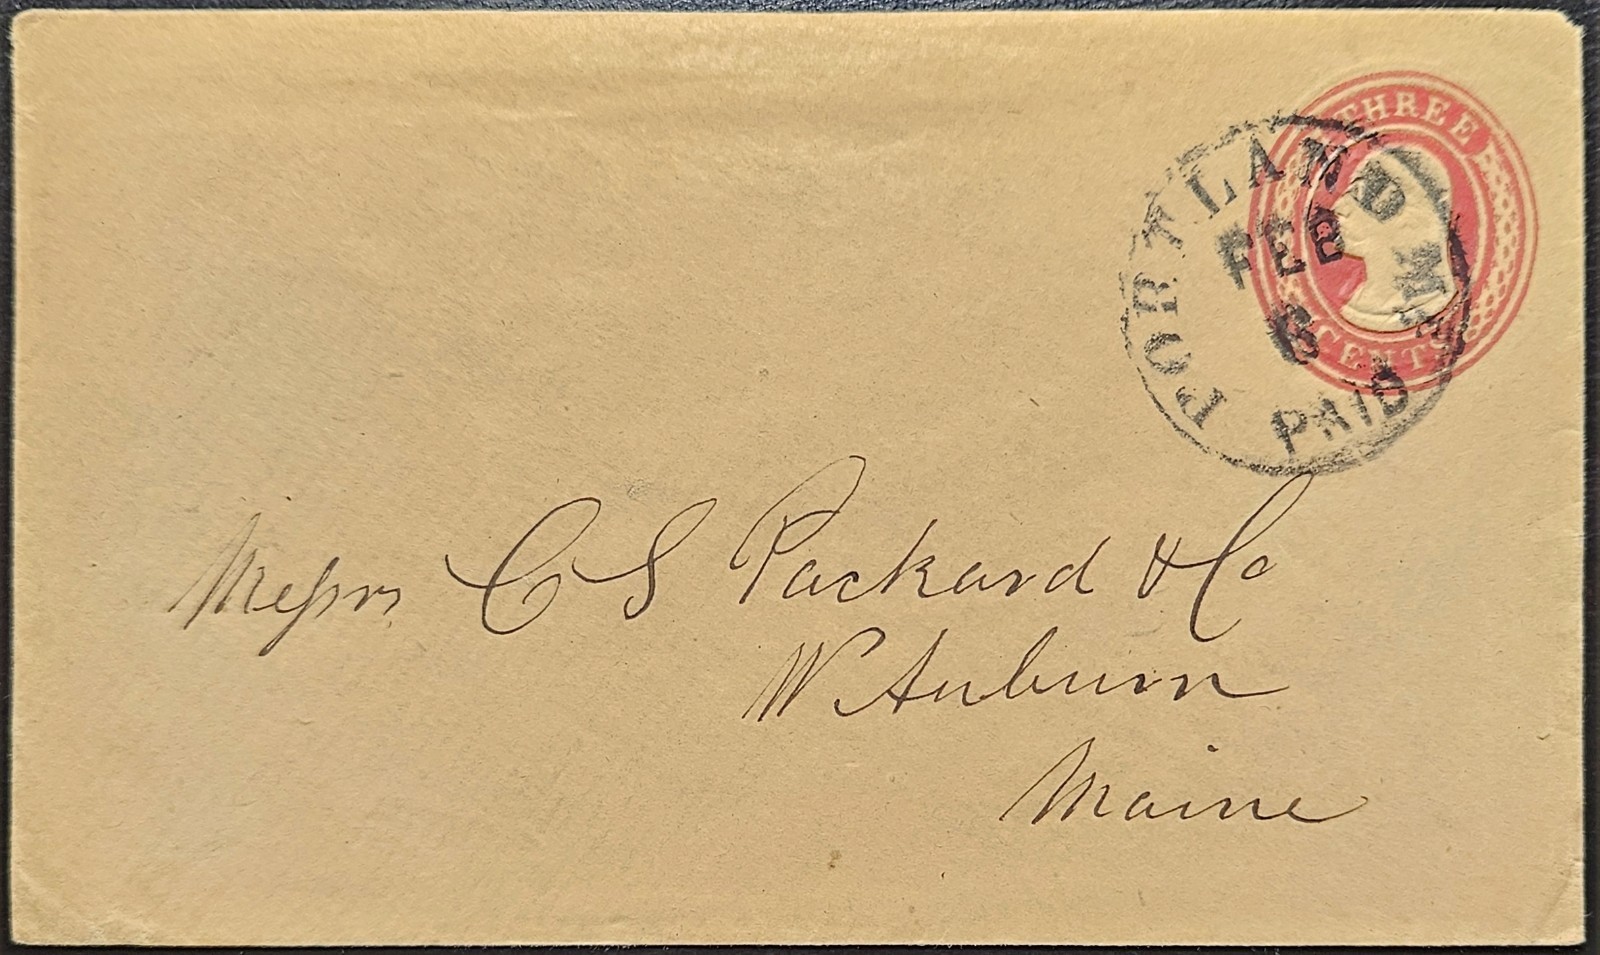 THREE
CENTS
PORTLAND Me
FEB
6
PAID
Messrs C S Packard & Co
W. Auburn
Maine